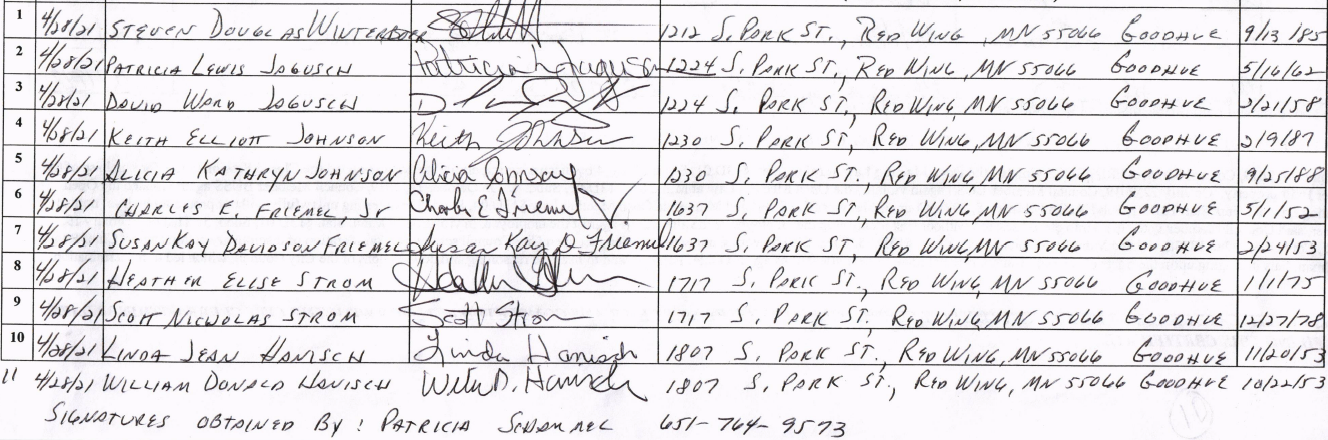 1 4/28/21 STEVEN DOUGLAS WINTERDOER 1212 S. PARK ST., RED WING, MN 55066 GOODHUE 9/13/85
2 4/28/21 PATRICIA LEWIS JAGUSCH Patricia L Jagusch 1224 S. PARK ST., RED WING, MN 55066 GOODHUE 5/16/62
3 4/28/21 DAVID WARD JAGUSCH 1224 S. PARK ST., RED WING, MN 55066 GOODHUE 2/21/58
4 4/28/21 KEITH ELLIOTT JOHNSON Keith Johnson 1230 S. PARK ST., RED WING, MN 55066 GOODHUE 2/9/87
5 4/28/21 ALICIA KATHRYN JOHNSON Alicia Johnson 1230 S. PARK ST., RED WING, MN 55066 GOODHUE 9/25/88
6 4/28/21 CHARLES E. FRIEMEL, Jr Charles E Friemel Jr 1637 S. PARK ST., RED WING, MN 55066 GOODHUE 5/1/52
7 4/28/21 SUSAN KAY DAVIDSON FRIEMEL Susan Kay D Friemel 1637 S. PARK ST, RED WING, MN 55066 GOODHUE 2/24/53
8 4/28/21 HEATHER ELISE STROM 1717 S. PARK ST., RED WING, MN 55066 GOODHUE 1/1/75
9 4/28/21 SCOTT NICHOLAS STROM Scott Strom 1717 S. PARK ST. RED WING, MN 55066 GOODHUE 12/27/78
10 4/28/21 LINDA JEAN HANISCH Linda Hanisch 1807 S. PARK ST., RED WING, MN 55066 GOODHUE 11/20/53
11 4/28/21 WILLIAM DONALD HANISCH Willm D. Hanisch 1807 S. PARK ST., RED WING, MN 55066 GOODHUE 10/22/53
SIGNATURES OBTAINED BY: PATRICIA 651-764-9573